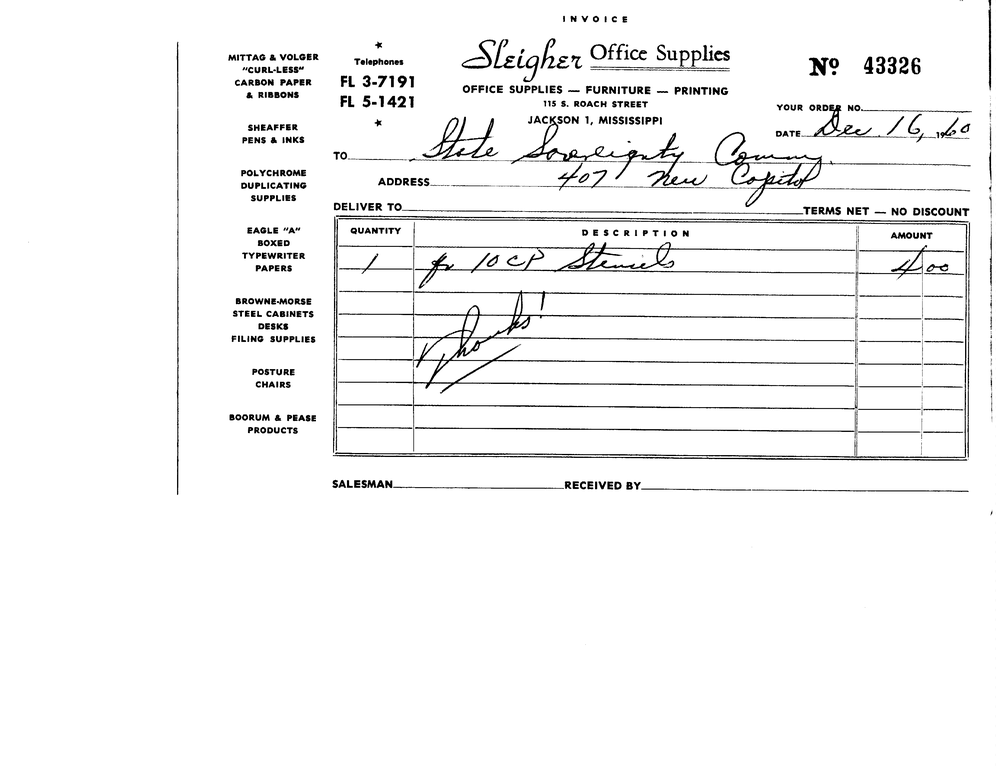 INVOICE
MITTAG & VOLGER
"CURL-LESS"
CARBON PAPER
& RIBBONS
SHEAFFER
PENS & INKS
POLYCHROME
DUPLICATING
SUPPLIES
EAGLE "A"
BOXED
TYPEWRITER
PAPERS
BROWNE-MORSE
STEEL CABINETS
DESKS
FILING SUPPLIES
POSTURE
CHAIRS
BOORUM & PEASE
PRODUCTS
Telephones
FL 3-7191
FL 5-1421
Sleigher Office Supplies
OFFICE SUPPLIES — FURNITURE — PRINTING
115 S. ROACH STREET
JACKSON 1, MISSISSIPPI
Nº 43326
YOUR ORDER NO.
DATE Dec. 16, 1960
TO State Sovereignty Comm.
ADDRESS 407 New Capitol
DELIVER TO TERMS NET — NO DISCOUNT
QUANTITY DESCRIPTION AMOUNT
1 10 CP Stencils 4 00
Thanks!
SALESMAN RECEIVED BY